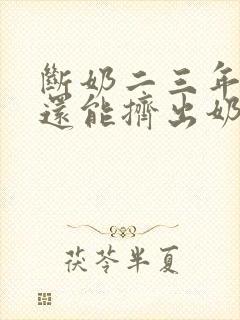 斷奶二三年
還能擠出奶
茯苓半夏